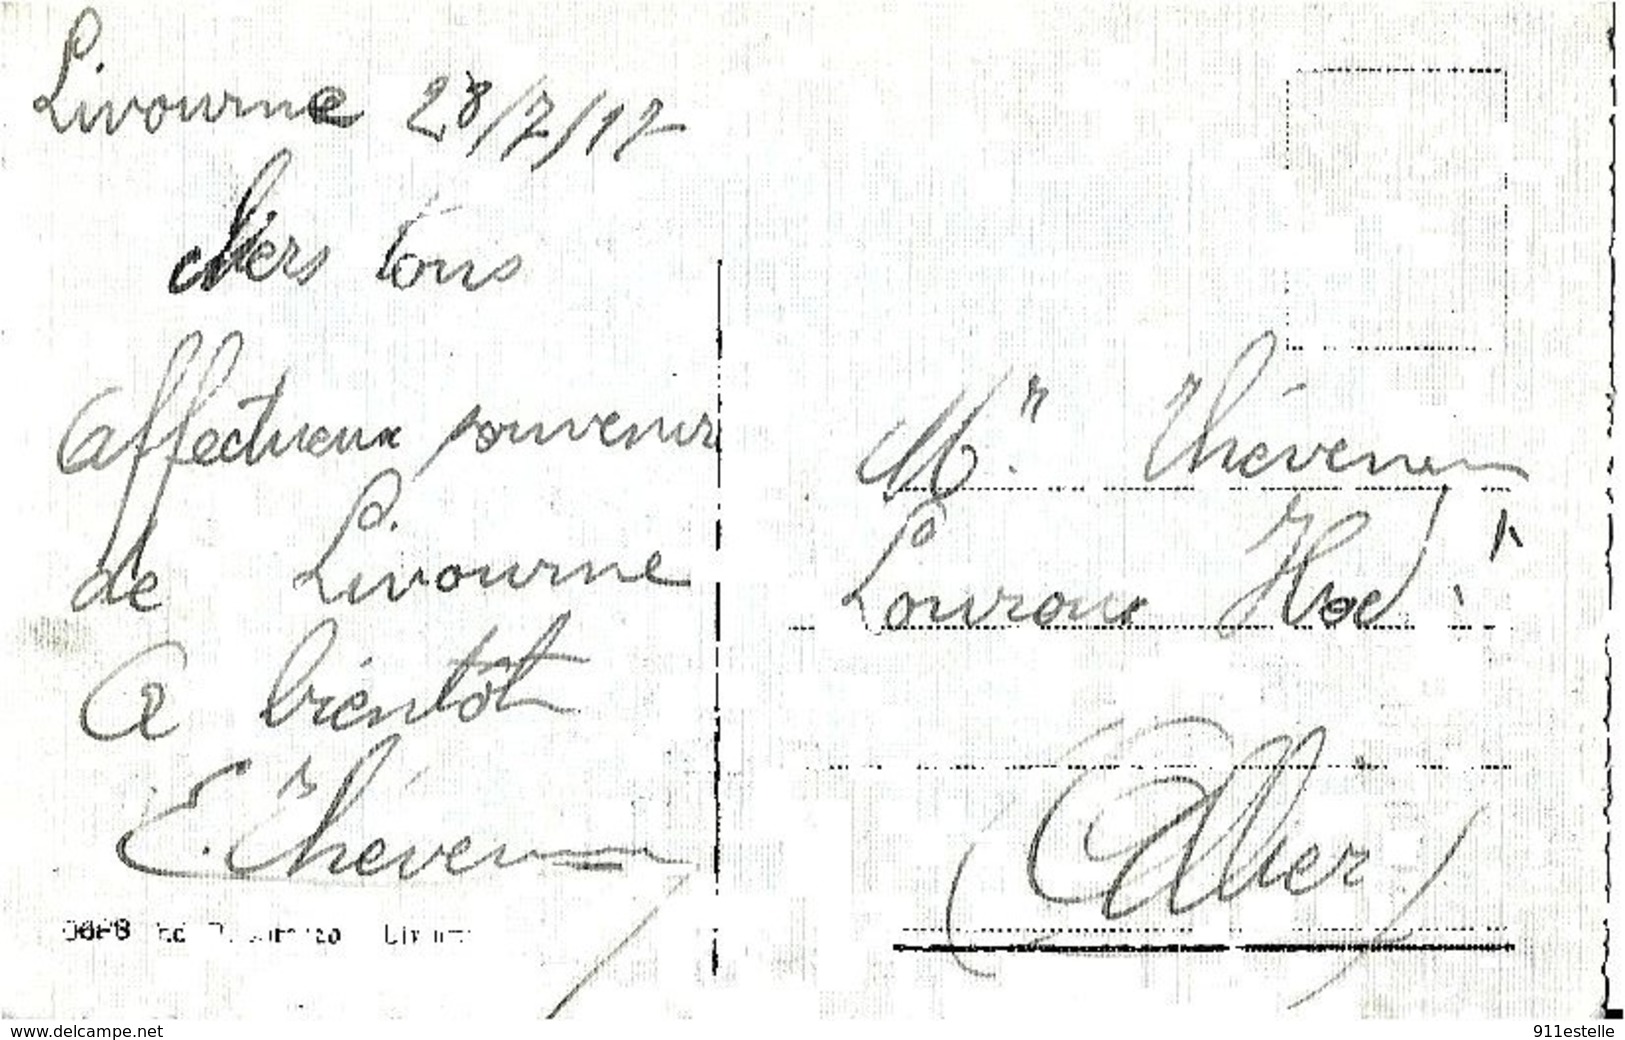 Livourne 28/7/17
Chers tous
Affectueux souvenir
de Livourne
A bientôt
E. Thévenin
Mr. Thévenin
Louroux Hod
(Allier)
www.delcampe.net
911estelle